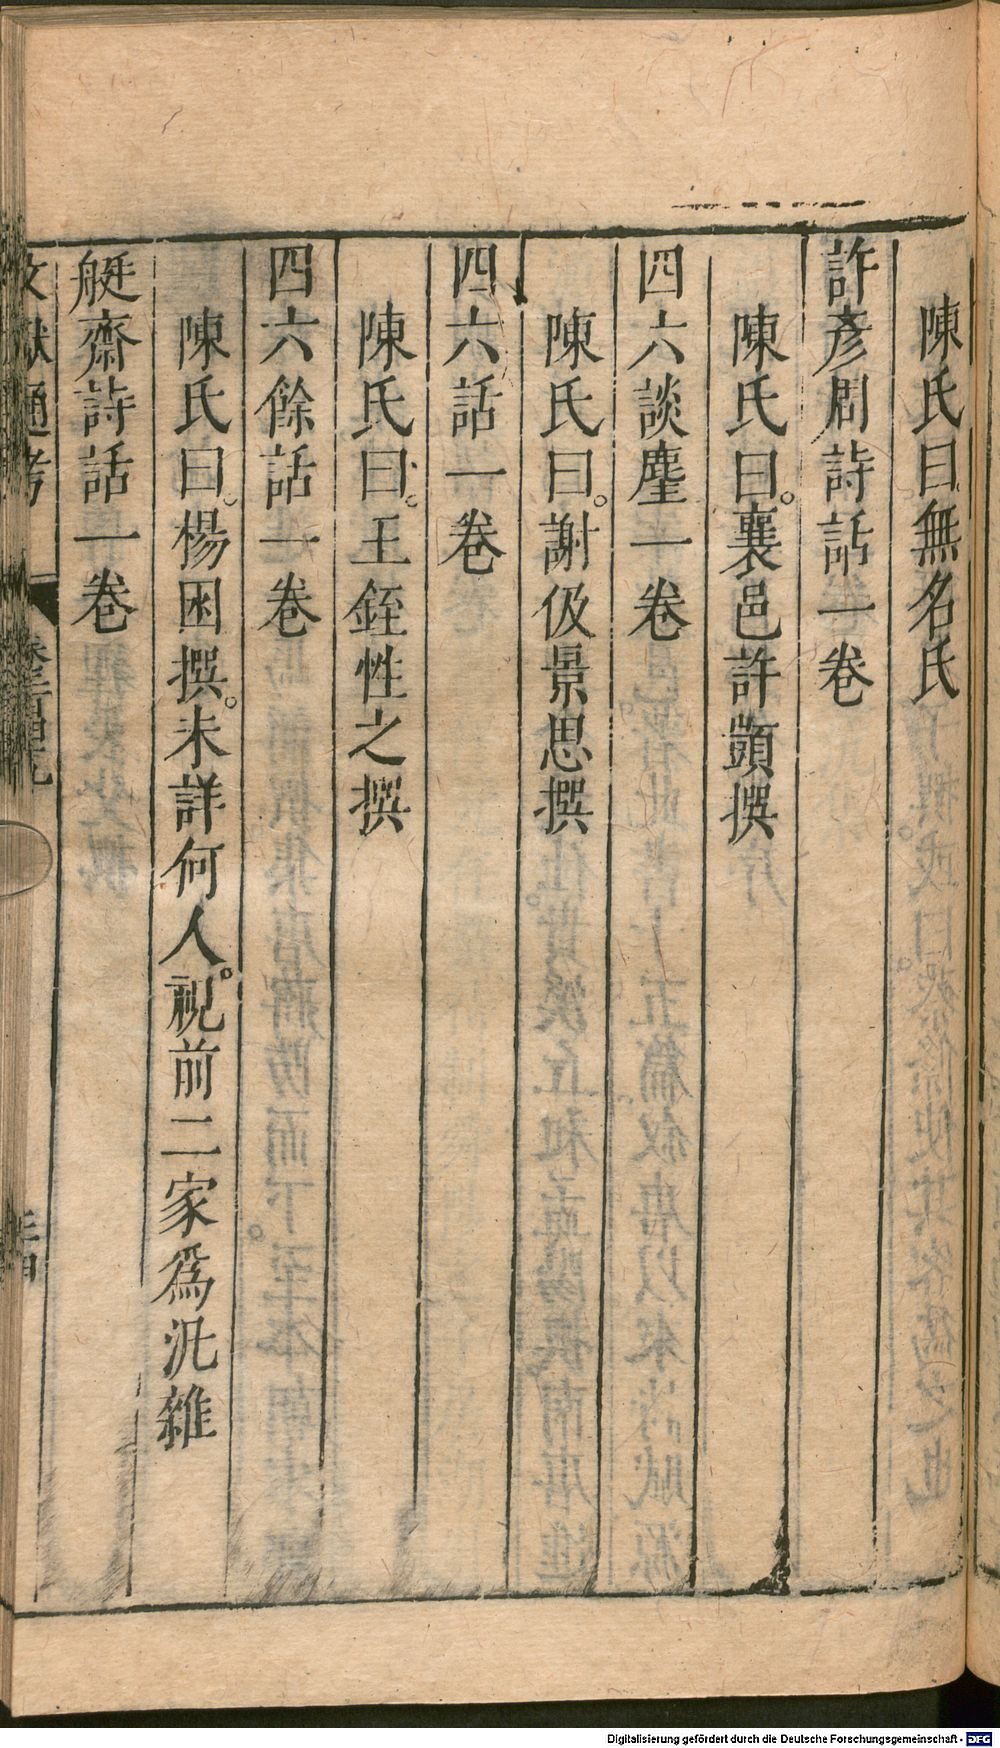 陳氏曰無名氏
許彥周詩話一卷
陳氏曰。襄邑許顗撰
四六談麈一卷
陳氏曰。謝伋景思撰
四六話一卷
陳氏曰。王銍性之撰
四六餘話一卷
陳氏曰。楊囦撰。未詳何人。視前二家為汎雜
艇齋詩話一卷
文獻通考
Digitalisierung gefördert durch die Deutsche Forschungsgemeinschaft - DFG